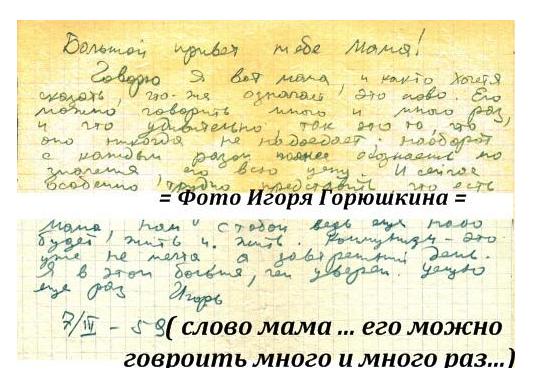 Большой привет тебе Мама!
Говорю Я вот мама и как то хочется
сказать, что-же означает, это слово. Его
можно говорить много и много раз,
и что удивительно, так это то, что,
оно никогда не надоедает. наоборот
с каждым разом полнее осознаешь
значения его всю цену. И сейчас
особенно, трудно представить что есть
= Фото Игоря Горюшкина =
Мама, нам с тобой ведь еще надо
будет, жить и жить. Коммунизм - это
уже не мечта а завтрашний день.
Я в этом больше, чем уверен. целую
еще раз Игорь
7/IV - 59
( слово мама ... его можно
говроить много и много раз...)